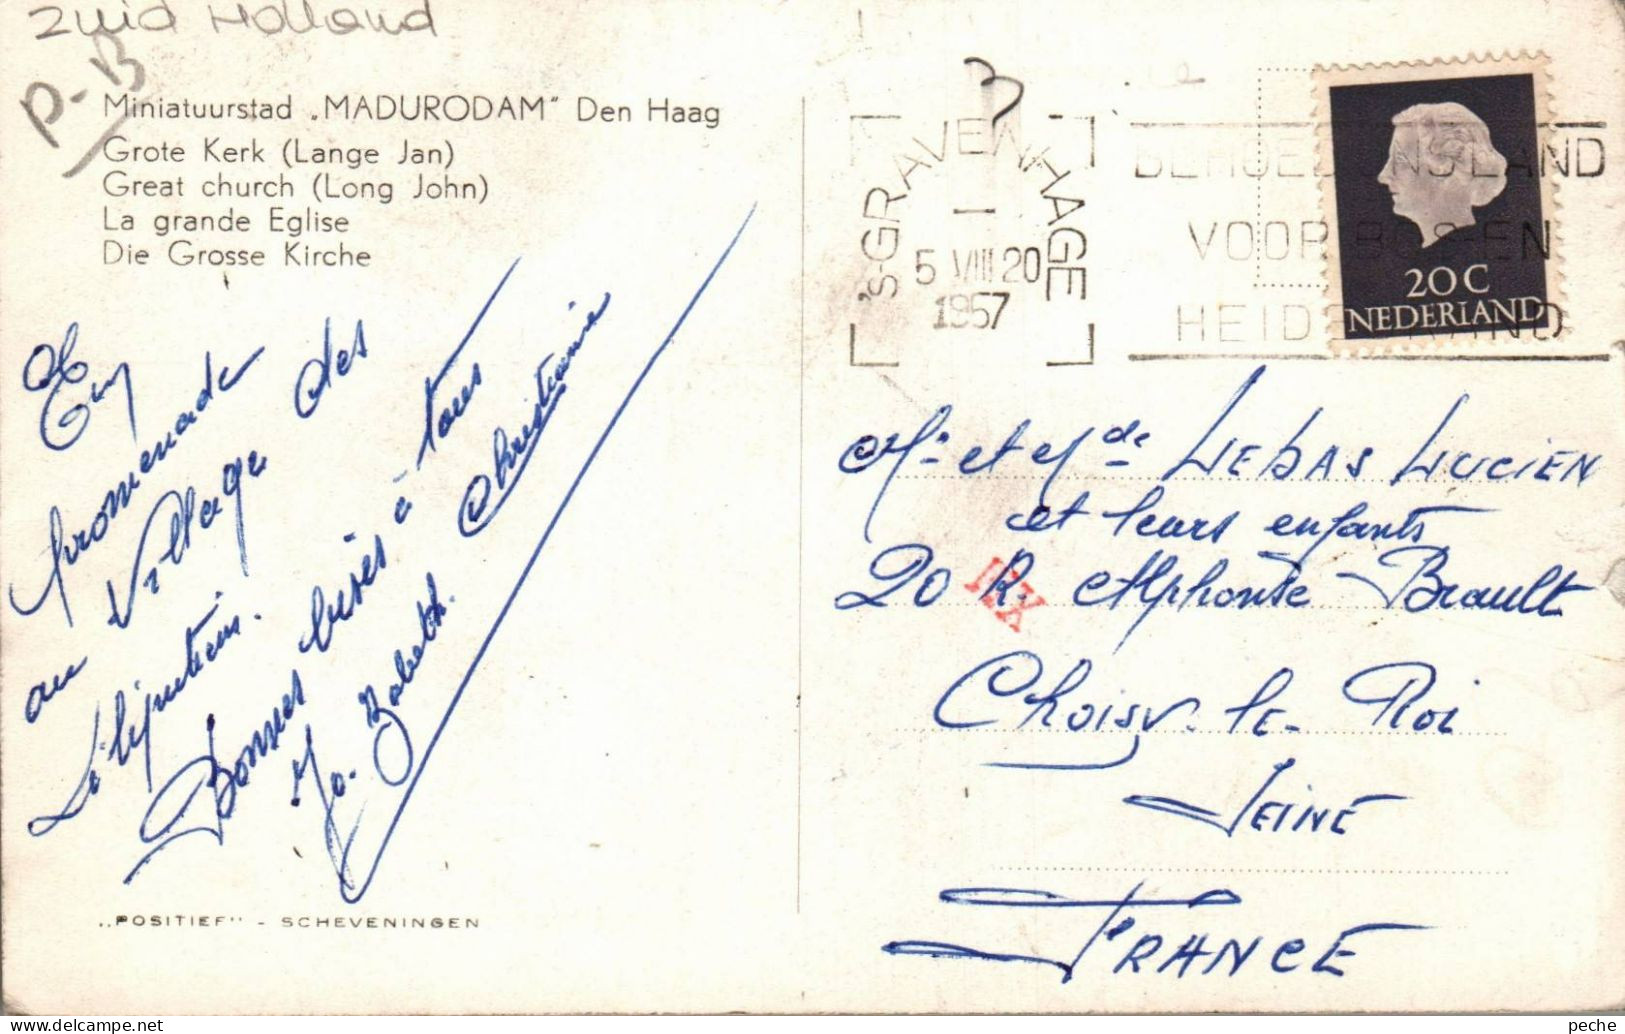 Zuid Holland
P-B
Miniatuurstad „MADURODAM" Den Haag
Grote Kerk (Lange Jan)
Great church (Long John)
La grande Eglise
Die Grosse Kirche
En
promenade
au Village des
Lilliputiens.
Bonnes bises à tous
Jo. Babeth. Christiane
„POSITIEF" - SCHEVENINGEN
'S-GRAVENHAGE
5 VIII 20
1957
BEHOED ONS LAND
VOOR BOS-EN
HEIDEBRAND
20 C
NEDERLAND
Mr et Mde LEBAS LUCIEN
et leurs enfants
20 R. Alphonse Brault
Choisy-le-Roi
SEINE
FRANCE
peche